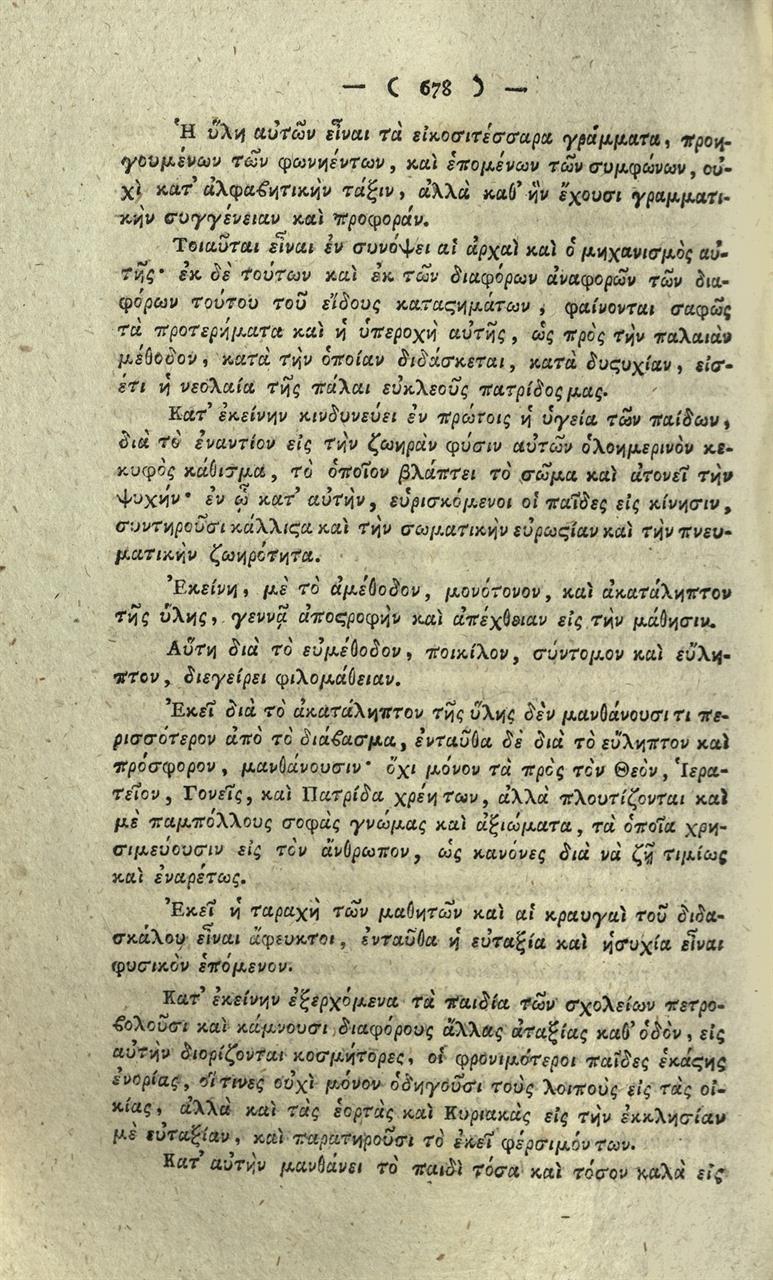 — ( 678 ) —
Ἡ ὕλη αὐτῶν εἶναι τὰ εἰκοσιτέσσαρα γράμματα, προη-
γουμένων τῶν φωνηέντων, καὶ ἑπομένων τῶν συμφώνων, οὐ-
χὶ κατ' ἀλφαβητικὴν τάξιν, ἀλλὰ καθ' ἣν ἔχουσι γραμματι-
κὴν συγγένειαν καὶ προφοράν.
Τοιαῦται εἶναι ἐν συνόψει αἱ ἀρχαὶ καὶ ὁ μηχανισμὸς αὐ-
τῆς· ἐκ δὲ τούτων καὶ ἐκ τῶν διαφόρων ἀναφορῶν τῶν δια-
φόρων τούτου τοῦ εἴδους καταϛημάτων, φαίνονται σαφῶς
τὰ προτερήματα καὶ ἡ ὑπεροχὴ αὐτῆς, ὡς πρὸς τὴν παλαιὰν
μέθοδον, κατὰ τὴν ὁποίαν διδάσκεται, κατὰ δυϛυχίαν, εἰσ-
έτι ἡ νεολαία τῆς πάλαι εὐκλεοῦς πατρίδος μας.
Κατ' ἐκείνην κινδυνεύει ἐν πρώτοις ἡ ὑγεία τῶν παίδων,
διὰ τὸ ἐναντίον εἰς τὴν ζωηρὰν φύσιν αὐτῶν ὁλοημερινὸν κε-
κυφὸς κάθισμα, τὸ ὁποῖον βλάπτει τὸ σῶμα καὶ ἀτονεῖ τὴν
ψυχήν· ἐν ᾧ κατ' αὐτὴν, εὑρισκόμενοι οἱ παῖδες εἰς κίνησιν,
συντηροῦσι κάλλιϛα καὶ τὴν σωματικὴν εὐρωϛίαν καὶ τὴν πνευ-
ματικὴν ζωηρότητα.
Ἐκείνη, μὲ τὸ ἀμέθοδον, μονότονον, καὶ ἀκατάληπτον
τῆς ὕλης, γεννᾷ ἀποϛροφὴν καὶ ἀπέχθειαν εἰς τὴν μάθησιν.
Αὕτη διὰ τὸ εὐμέθοδον, ποικίλον, σύντομον καὶ εὔλη-
πτον, διεγείρει φιλομάθειαν.
Ἐκεῖ διὰ τὸ ἀκατάληπτον τῆς ὕλης δὲν μανθάνουσι τι πε-
ρισσότερον ἀπὸ τὸ διάβασμα, ἐνταῦθα δὲ διὰ τὸ εὔληπτον καὶ
πρόσφορον, μανθάνουσιν· ὄχι μόνον τὰ πρὸς τὸν Θεὸν, Ἱερα-
τεῖον, Γονεῖς, καὶ Πατρίδα χρέη των, ἀλλὰ πλουτίζονται καὶ
μὲ παμπόλλους σοφὰς γνώμας καὶ ἀξιώματα, τὰ ὁποῖα χρη-
σιμεύουσιν εἰς τὸν ἄνθρωπον, ὡς κανόνες διὰ νὰ ζῇ τιμίως
καὶ ἐναρέτως.
Ἐκεῖ ἡ ταραχὴ τῶν μαθητῶν καὶ αἱ κραυγαὶ τοῦ διδα-
σκάλου εἶναι ἄφευκτοι, ἐνταῦθα ἡ εὐταξία καὶ ἡσυχία εἶναι
φυσικὸν ἑπόμενον.
Κατ' ἐκείνην ἐξερχόμενα τὰ παιδία τῶν σχολείων πετρο-
βολοῦσι καὶ κάμνουσι διαφόρους ἄλλας ἀταξίας καθ' ὁδὸν, εἰς
αὐτὴν διορίζονται κοσμήτορες, οἱ φρονιμότεροι παῖδες ἑκάϛης
ἐνορίας, οἵ τινες οὐχὶ μόνον ὁδηγοῦσι τοὺς λοιποὺς εἰς τὰς οἰ-
κίας, ἀλλὰ καὶ τὰς ἑορτὰς καὶ Κυριακὰς εἰς τὴν ἐκκλησίαν
μὲ εὐταξίαν, καὶ παρατηροῦσι τὸ ἐκεῖ φέρσιμόν των.
Κατ' αὐτὴν μανθάνει τὸ παιδὶ τόσα καὶ τόσον καλὰ εἰς